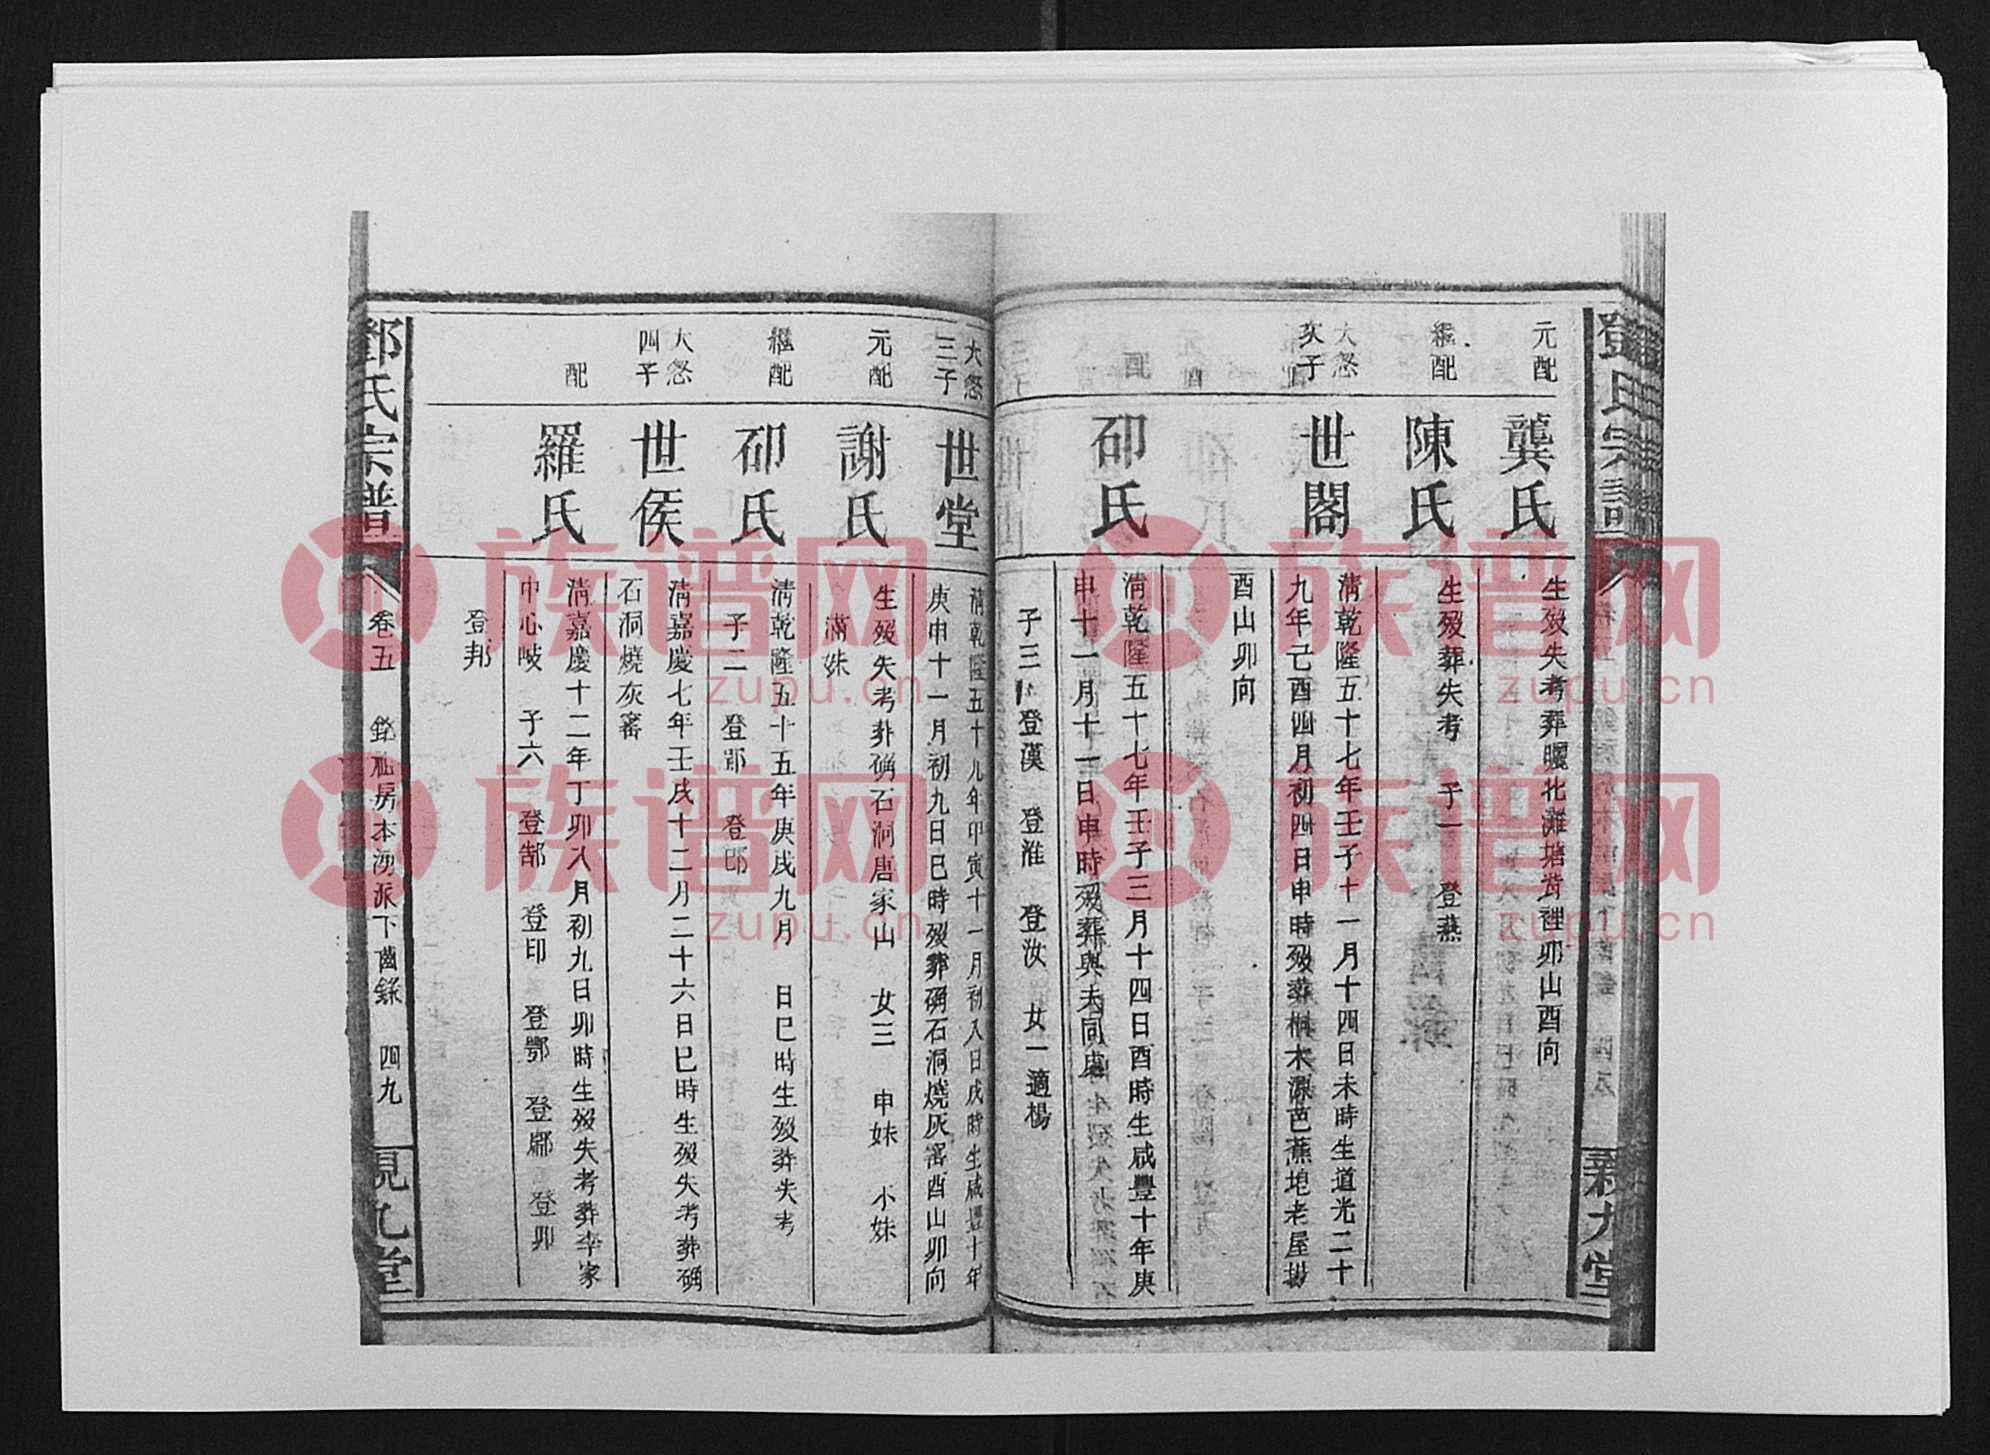 元配
龔氏
生歿失考葬曬北灘塘背裡卯山酉向
繼配
陳氏
生歿葬失考 子一 登燕
大忩
次子
世閣
清乾隆五十七年壬子十一月十四日未時生道光二十
九年己酉四月初四日申時歿葬桐木源芭蕉坨老屋
酉山卯向
配
邵氏
清乾隆五十七年壬子三月十四日酉時生咸豐十年庚
申十一月十一日申時歿葬與夫同處
子三 登漢 登淮 登汝 女一適楊
大忩
三子
世堂
清乾隆五十九年甲寅十一月初八日戌時生咸豐十年
庚申十一月初九日巳時歿葬硧石洞燒灰窰酉山卯向
元配
謝氏
生歿失考葬硧石洞唐家山 女三 申妹 小妹
滿妹
繼配
邵氏
清乾隆五十五年庚戌九月 日巳時生歿葬失考
子二 登鄖 登邵
大忩
四子
世侯
清嘉慶七年壬戌十二月二十六日巳時生歿失考葬硧
石洞燒灰窰
配
羅氏
清嘉慶十二年丁卯八月初九日卯時生歿失考葬李家
中心㟚 子六 登郜 登印 登鄂 登鄘 登卯
登邦
鄧氏宗譜
卷五
房本湧派下齒錄
四九
族谱网
zupu.cn
族谱网
zupu.cn
族谱网
zupu.cn
族谱网
zupu.cn